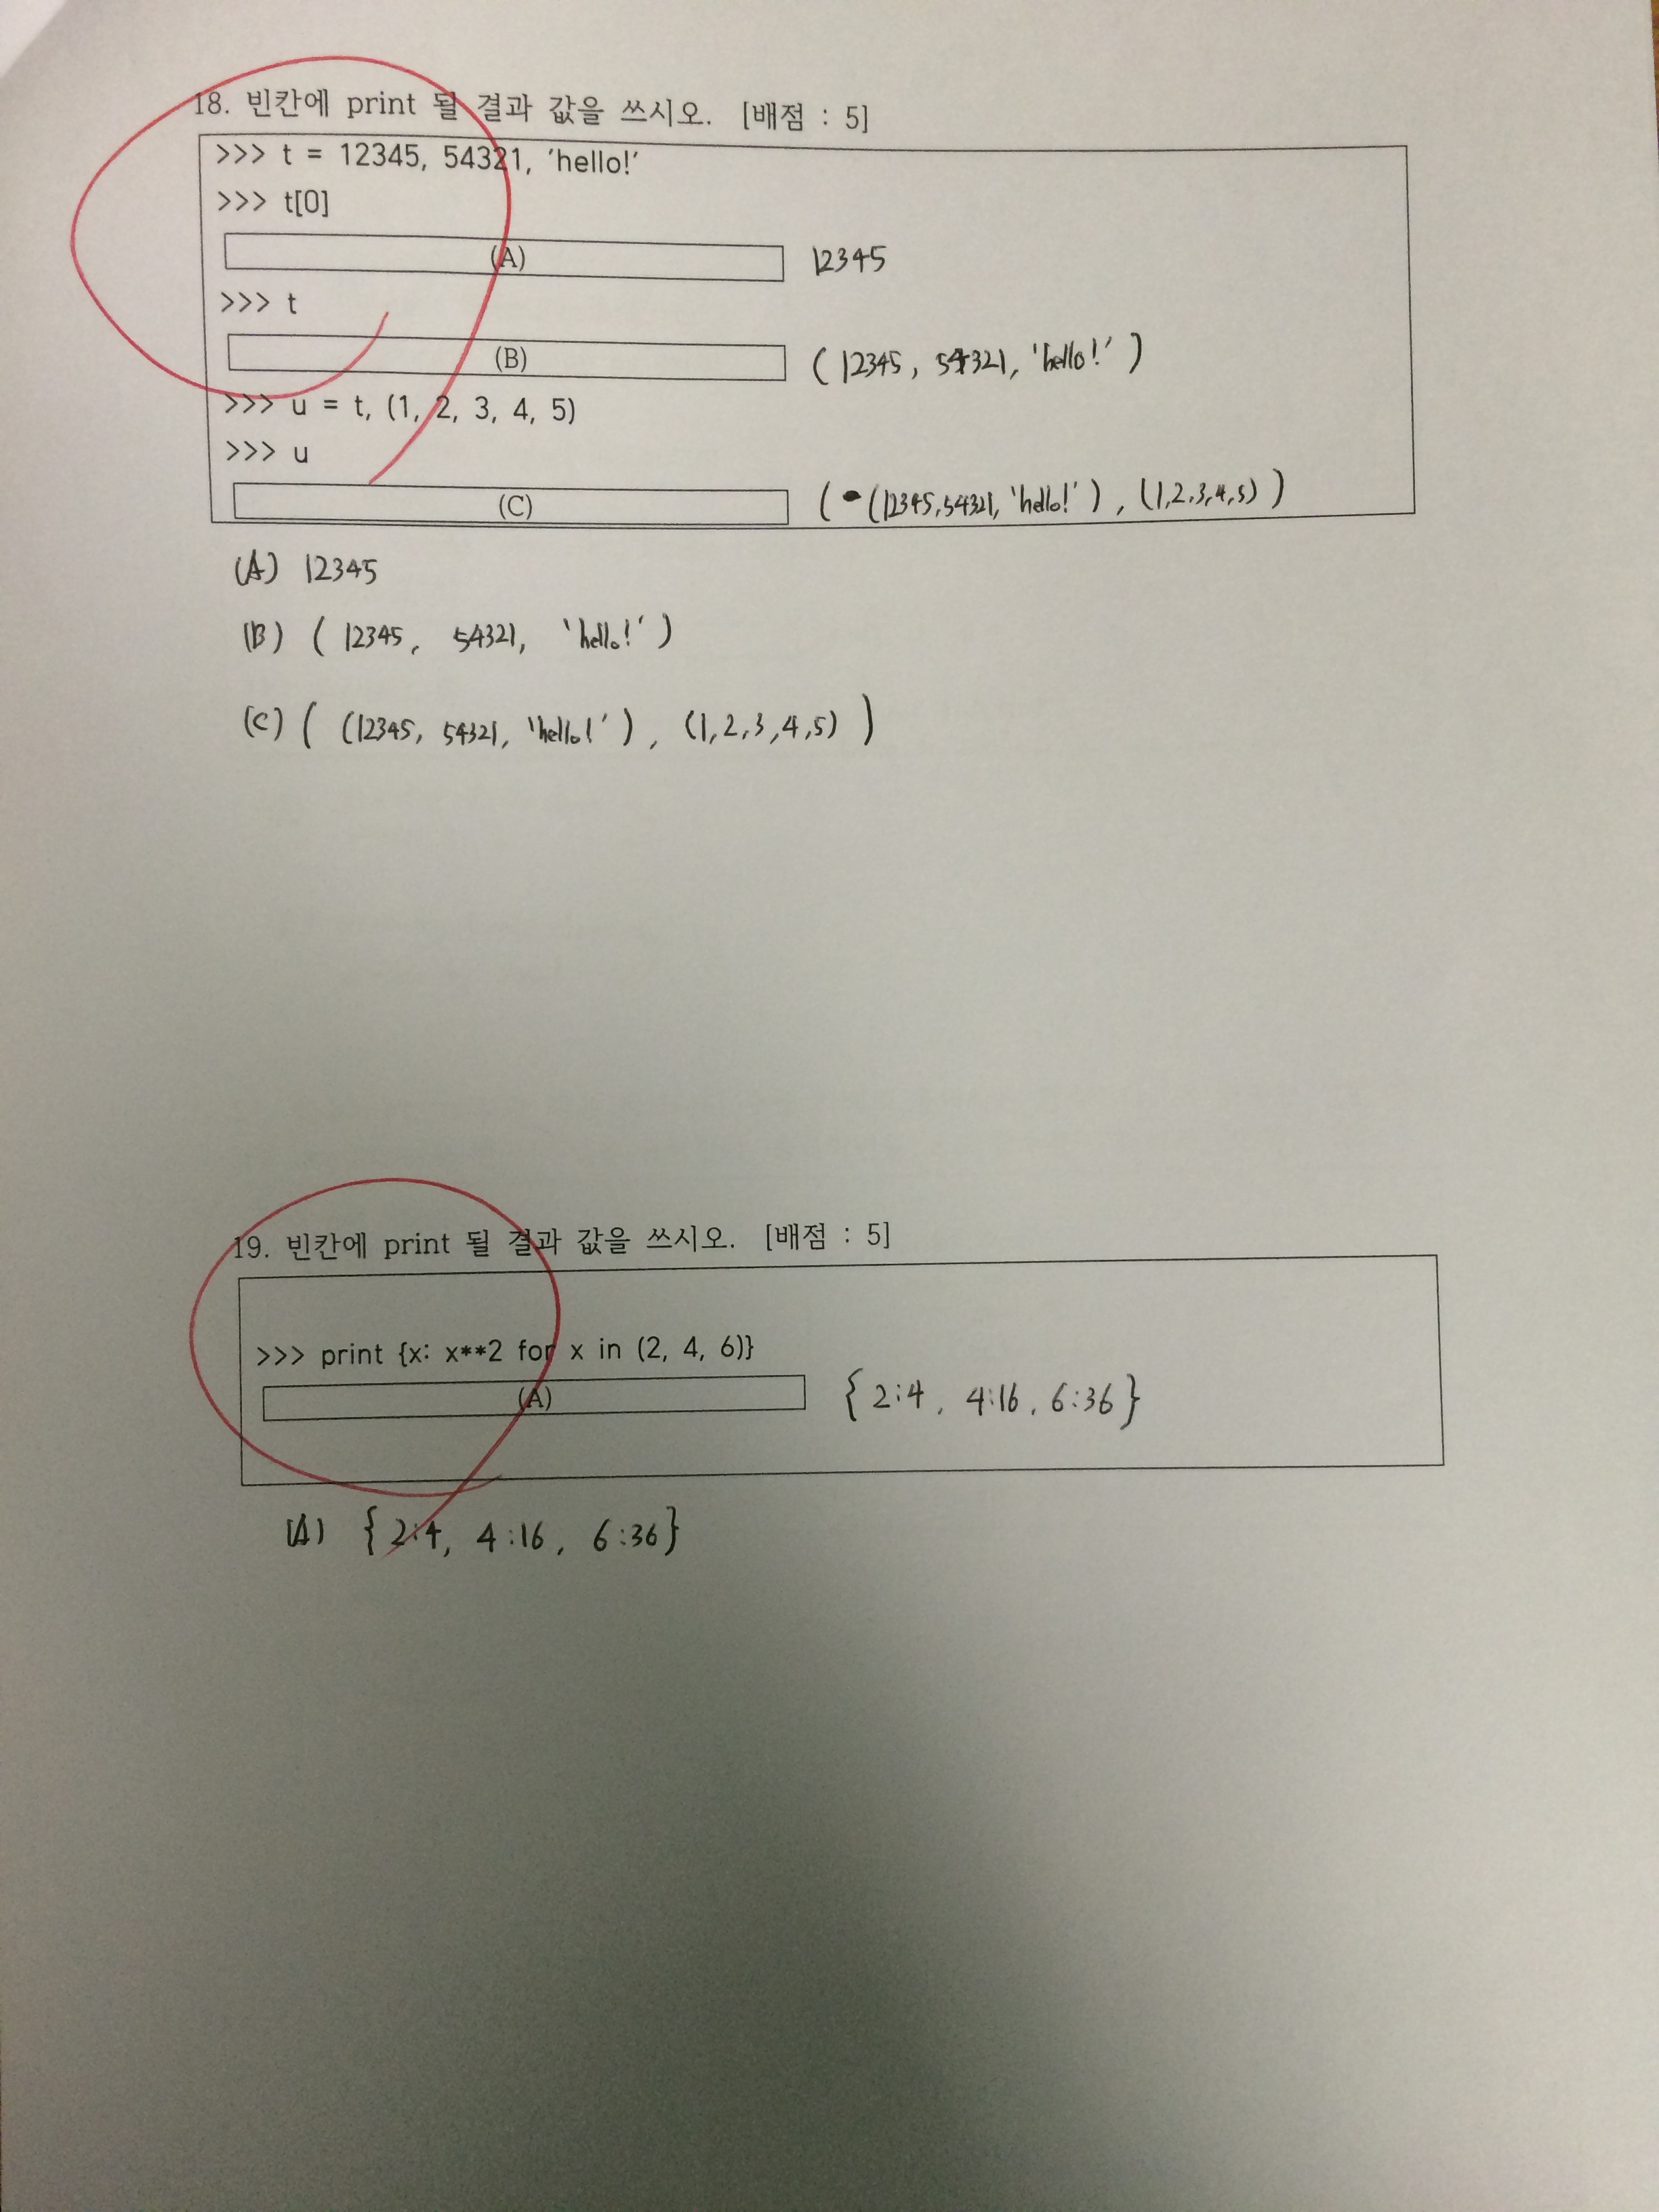 18. 빈칸에 print 될 결과 값을 쓰시오. [배점 : 5]
>>> t = 12345, 54321, 'hello!'
>>> t[0]
(A) 12345
>>> t
(B) (12345, 54321, 'hello!')
>>> u = t, (1, 2, 3, 4, 5)
>>> u
(C) ((12345,54321, 'hello!'), (1,2,3,4,5))
(A) 12345
(B) (12345, 54321, 'hello!')
(C) ((12345, 54321, 'hello!'), (1,2,3,4,5))
19. 빈칸에 print 될 결과 값을 쓰시오. [배점 : 5]
>>> print {x: x**2 for x in (2, 4, 6)}
(A) {2:4, 4:16, 6:36}
(A) {2:4, 4:16, 6:36}